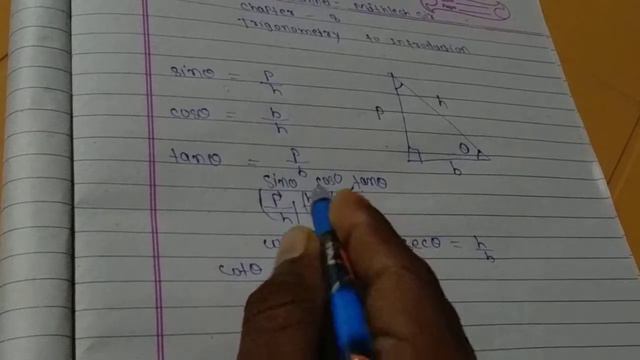 chapter - 8
Trigonometry to Introduction
sinθ = P/h
cosθ = b/h
tanθ = P/b
P
h
θ
b
sinθ cosθ tanθ
P/h
secθ = h/b
cotθ